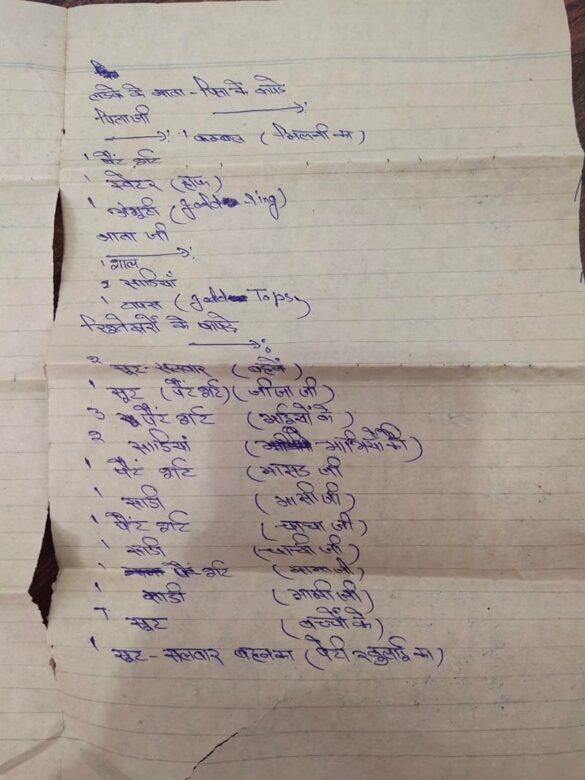 लडके के माता - पिता के कपडे
पिताजी
1 कम्बल (मिलनी का)
1 पैंट शर्ट
1 स्वेटर (हाफ)
1 अंगुठी (gold ring)
माता जी
1 शाल
2 साडियाँ
1 टापस (gold Tops)
रिश्तेदारों के कपडे
2 सूट-सलवार (बहनें)
1 सूट (पैंट शर्ट) (जीजा जी)
3 पैंट शर्ट (भाईयों के)
2 साडियां (भाभियों की)
1 पैंट शर्ट (मासड जी)
1 साडी (मासी जी)
1 पैंट शर्ट (चाचा जी)
1 साडी (चाची जी)
1 पैंट शर्ट (मामा जी)
1 साडी (मामी जी)
7 सूट (बच्चों के)
1 सूट-सलवार बहनका (पेटी खुलाई का)